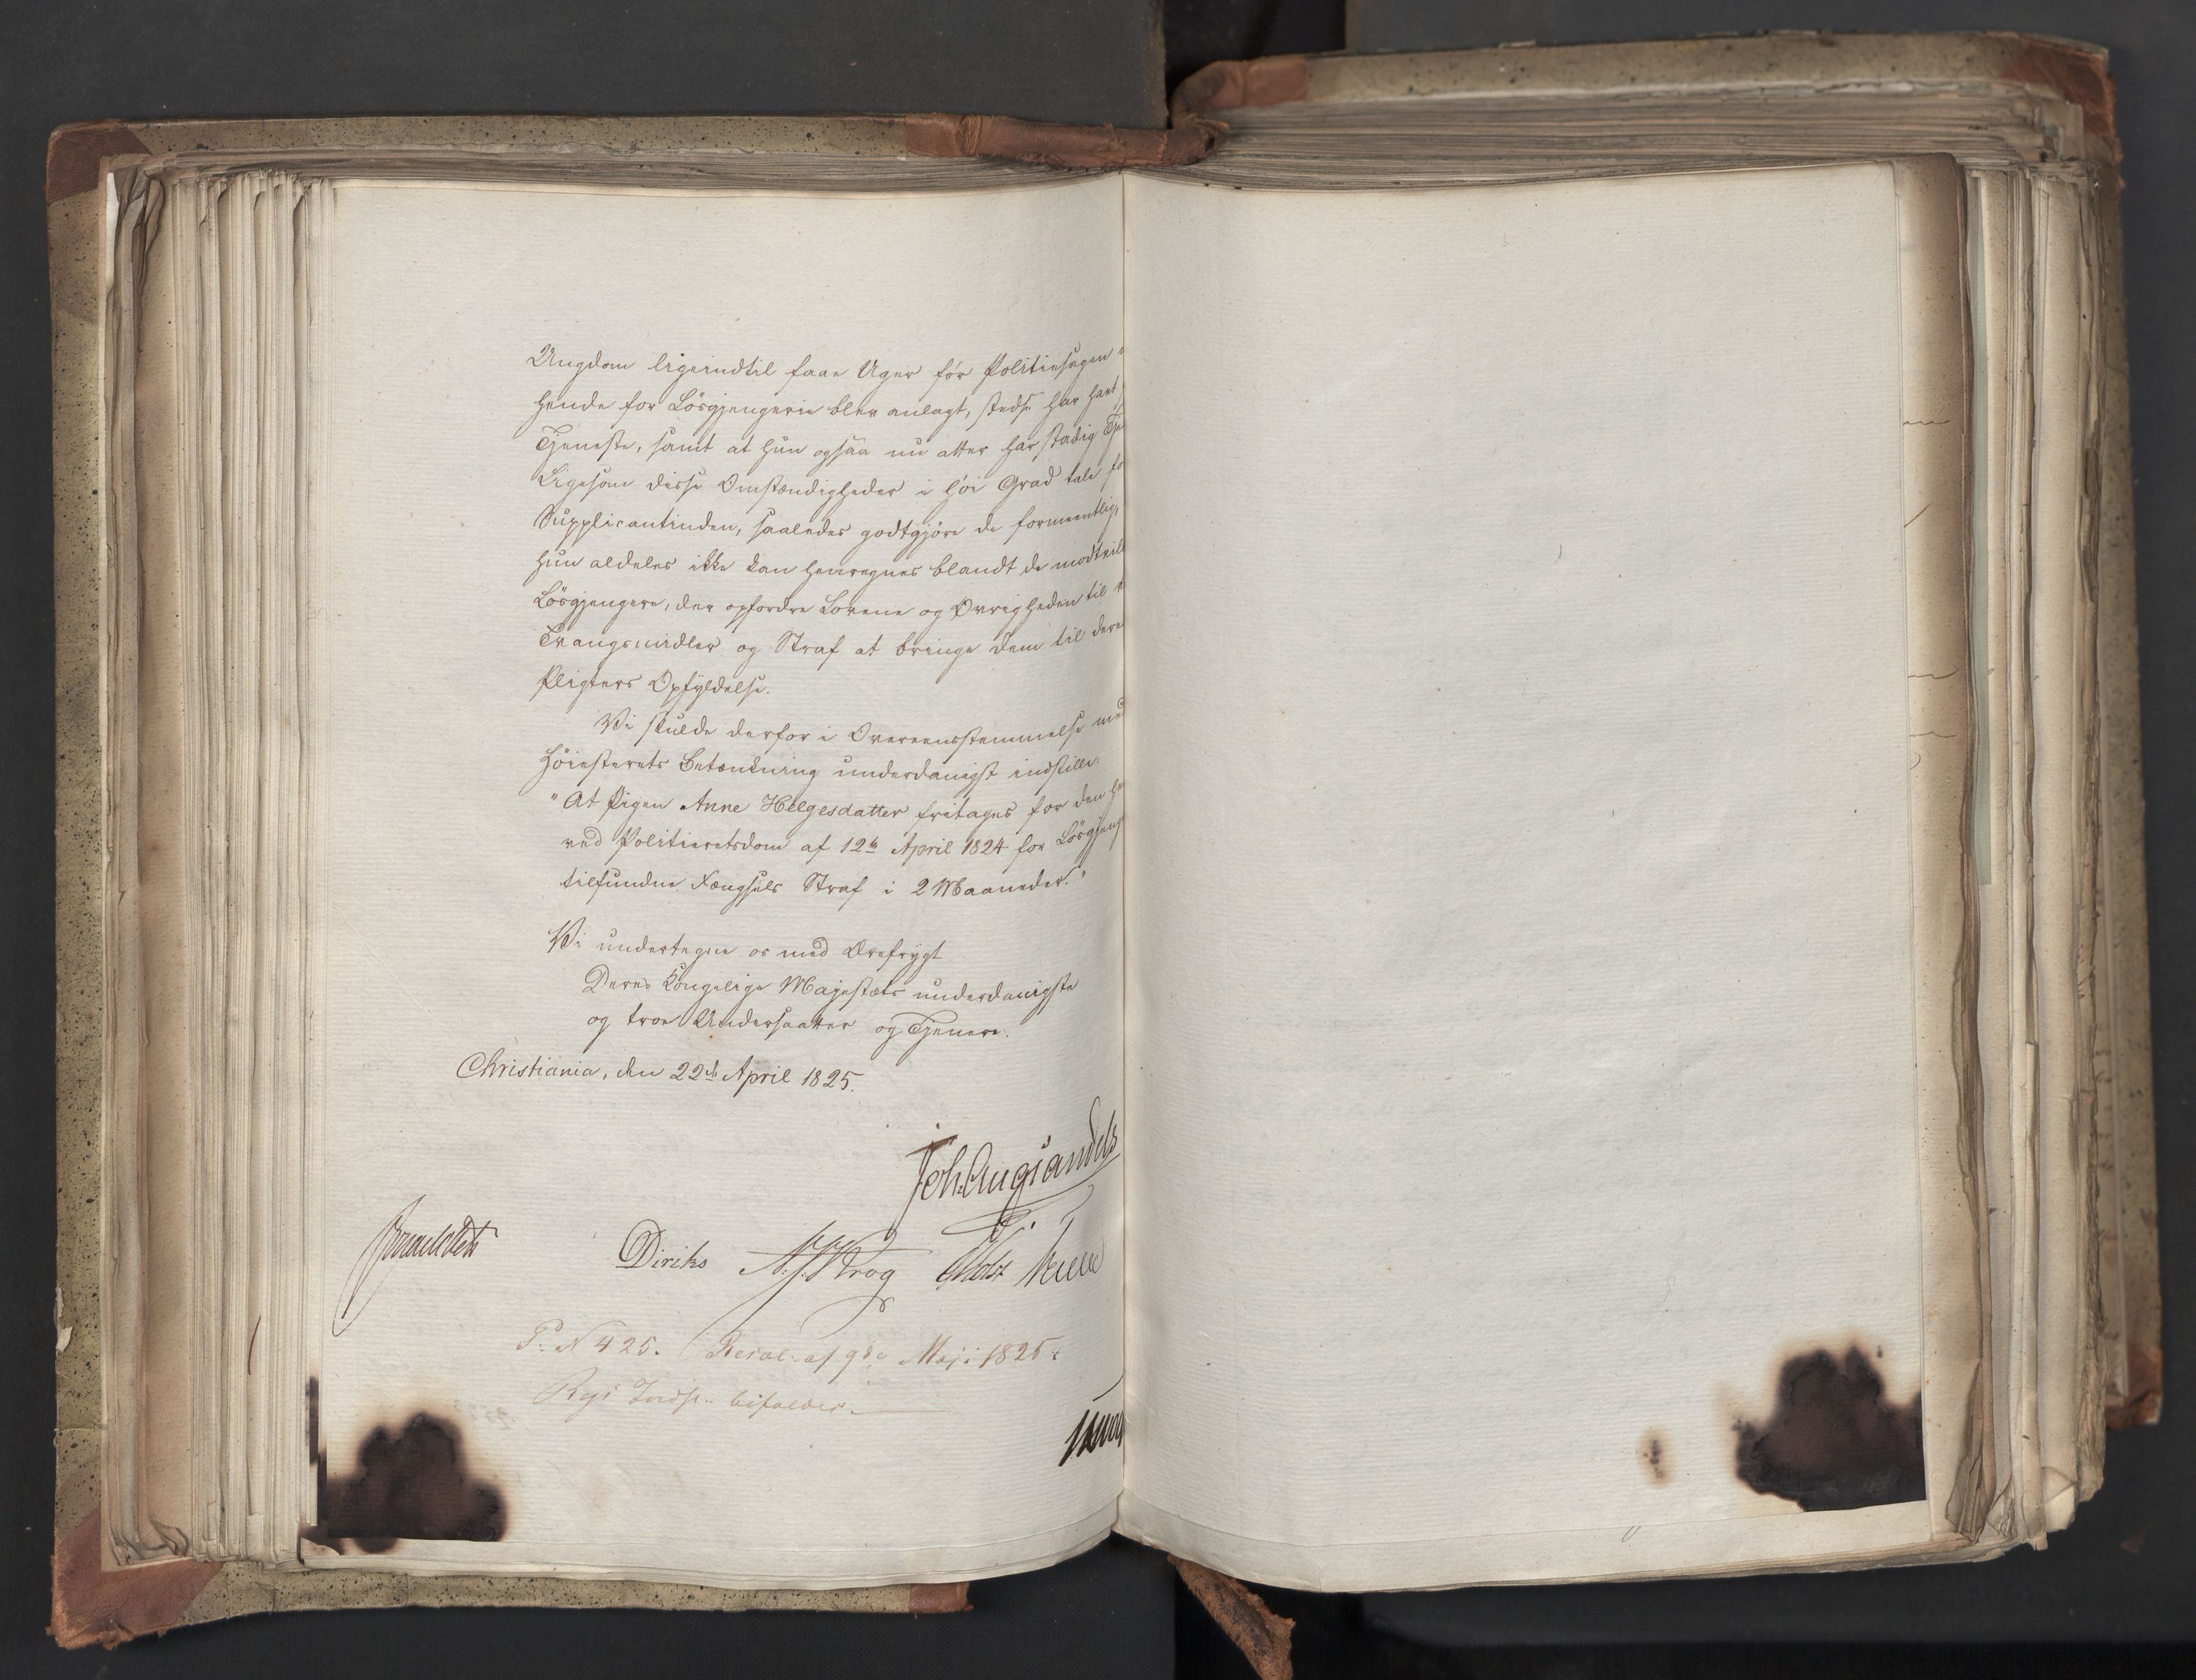 Ungdom ligeindtil faae Uger før Politiesagen
hende for Løsgjengerie blev anlagt, stedse har havt
Tjeneste, samt at hun ogsaa nu atter har stadig Tje
Ligesom disse Omstændigheder i høi Grad tale fo
Supplicantinden, saaledes godtgjøre de formeentlig,
hun aldeles ikke kan henregnes blandt de modvill
Løsgjengere, der opfordre Lovene og Øvrigheden til
Tvangsmidler og Straf at bringe dem til deres
Pligters Opfyldelse.
Vi skulde derfor i Overeensstemmelse med
Høiesterets Betænkning underdanigst indstille:
"At Pigen Anne Helgesdatter fritages for den he
ved Politieretsdom af 12te April 1824 for Løsgjeng
tilfundne Fængsels Straf i 2 Maaneder."
Vi undertegne os med Ærefrygt
Deres Kongelige Majestæts underdanigste
og troe Undersaatter og Tjenere.
Christiania, den 22de April 1825.
Joh. Aug. Sandels
Diriks N. J. Krog Holst
P. N 425. Resol. af 9de Maji 1825:
Regs Indst. bifaldes.